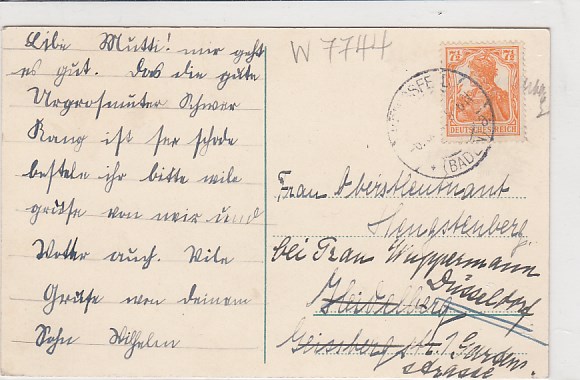 Libe Mutti! mir geht
es gut. Das die gute
Urgrosmuter Schwer
Krang ist ser schade
bestele ihr bitte vile
grüse von mir und
Votter auch. Vile
Grüse von deinem
Sohn Wilhelm
W 7744
7½ 7½
DEUTSCHES REICH
(BADEN)
Frau Oberstleutnant
Hengstenberg
bei Frau Wuppermann
Düsseldorf
Heidelberg
Geissberg str. 1 Garten
strasse